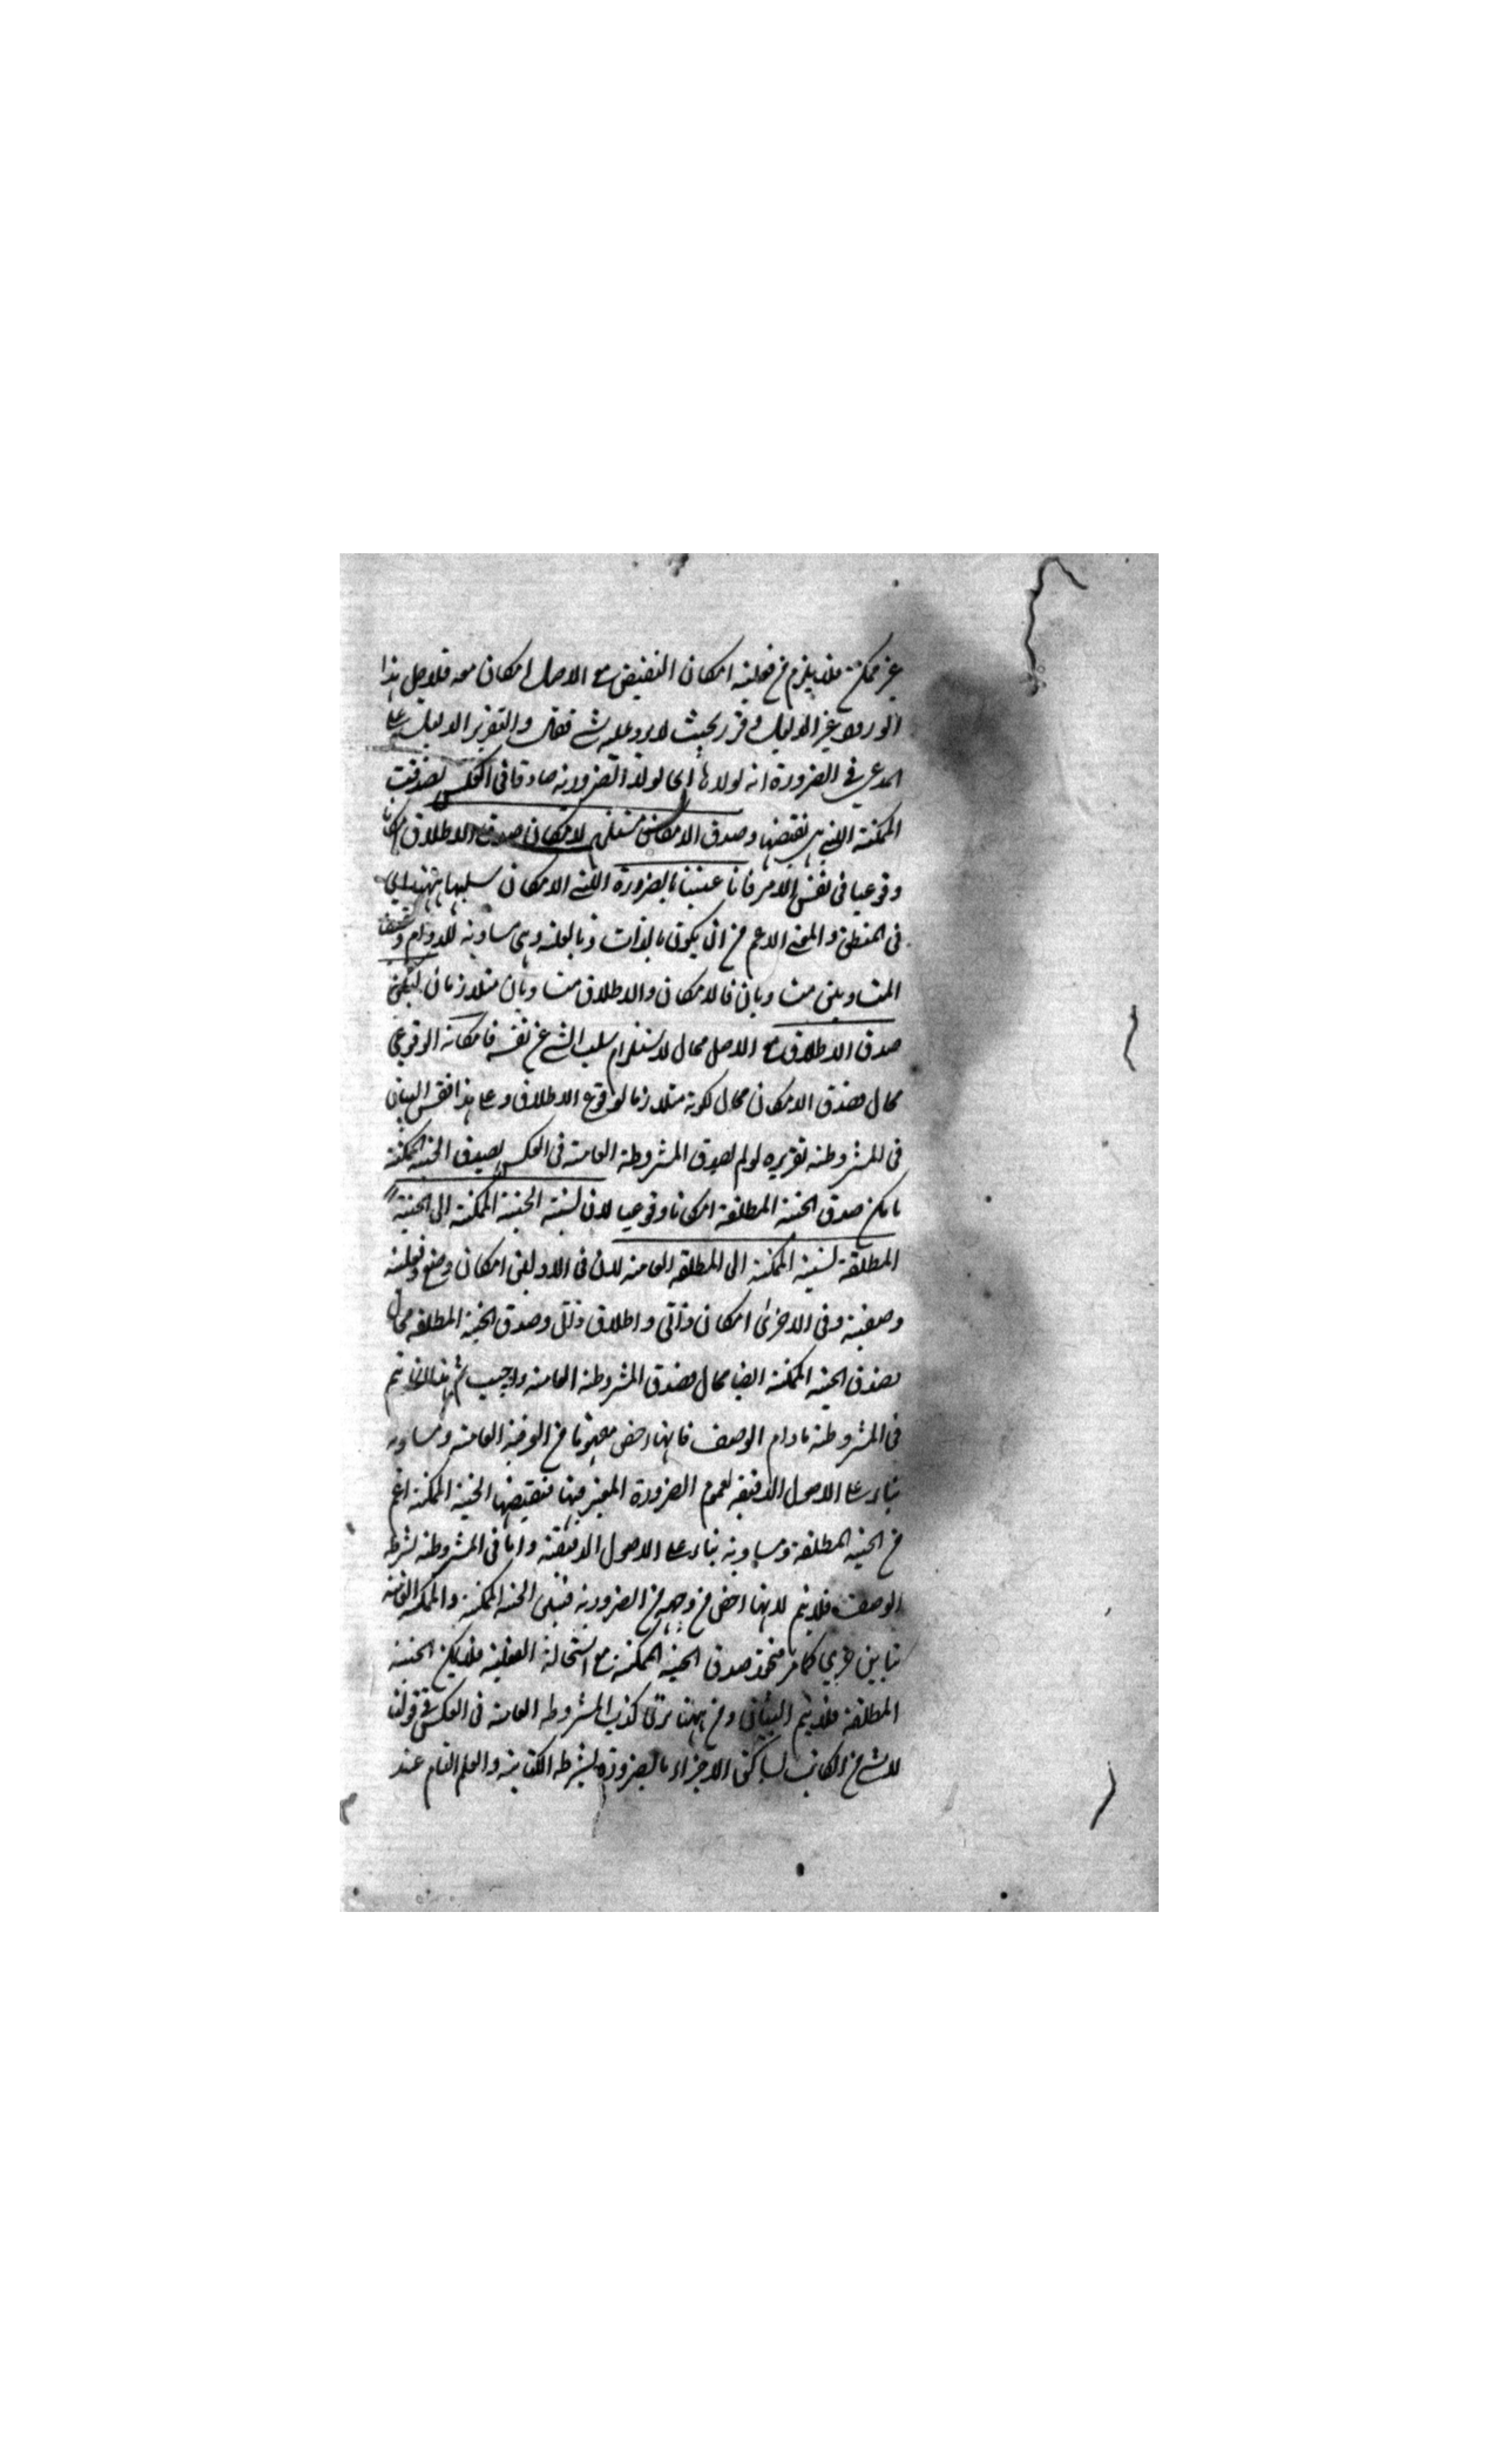 غير ممكن فلا يلزم من فعلية امكان النقيض مع الاصل امكان معه فلاجل هذا
الورود غير الدليل وقرر بحيث لا يرد عليه شئ فقال والتقرير الدليل على
المدعى في الضرورة انه لولاها اى لولا الضرورية صادقا فى العكس لصدقت
الممكنة التى هى نقيضها وصدق الامكان مستلزم لامكان صدق الاطلاق امكانا
وقوعيا فى نفس الامر فانا عنينا بالضرورة التى الامكان سلبها ههنا اى
فى المنطق والمعنى الاعم من ان يكون بالذات وبالعلة وهى مساوية للدوام ونقيضا
المتساويين متساويان فالامكان والاطلاق متساويان متلازمان لكن
صدق الاطلاق مع الاصل محال لاستلزام سلب الشئ عن نفسه فامكانه الوقوعى
محال فصدق الامكان محال لكونه متلازما لوقوع الاطلاق وعلى هذا فقس البيان
فى المشروطة تقريره لو لم يصدق المشروطة العامة فى العكس لصدق الحينية الممكنة
بامكن صدق الحينية المطلقة امكانا وقوعيا لان نسبة الحينية الممكنة الى الحينية
المطلقة كنسبة الممكنة الى المطلقة العامة لان فى الاوليين امكان وصفى وفعلية
وصفية وفى الاخرى امكان ذاتى واطلاق ذاتى وصدق الحينية المطلقة محال
فصدق الحينية الممكنة ايضا محال فصدق المشروطة العامة واجيب ثم هذا انما يتم
فى المشروطة ما دام الوصف فانها اخص مفهوما من العرفية العامة ومساوية
بناء على الاصول الدقيقة لعموم الضرورة المعتبر فيها فنقيضها الحينية الممكنة اعم
من الحينية المطلقة ومساوية بناء على الاصول الدقيقة واما فى المشروطة بشرط
الوصف فلا يتم لانها اخص من وجه من الضرورية فبين الحينية الممكنة والممكنة العامة
تباين جزئى كما مر فيجوز صدق الحينية الممكنة مع استحالة الفعلية فلا يمكن الحينية
المطلقة فلا يتم البيان ومن ههنا ترى كذب المشروطة العامة فى العكس فى قولنا
لا شئ من الكاتب بساكن الاجزاء بالضرورة بشرط الكتابة والعلم التام عند